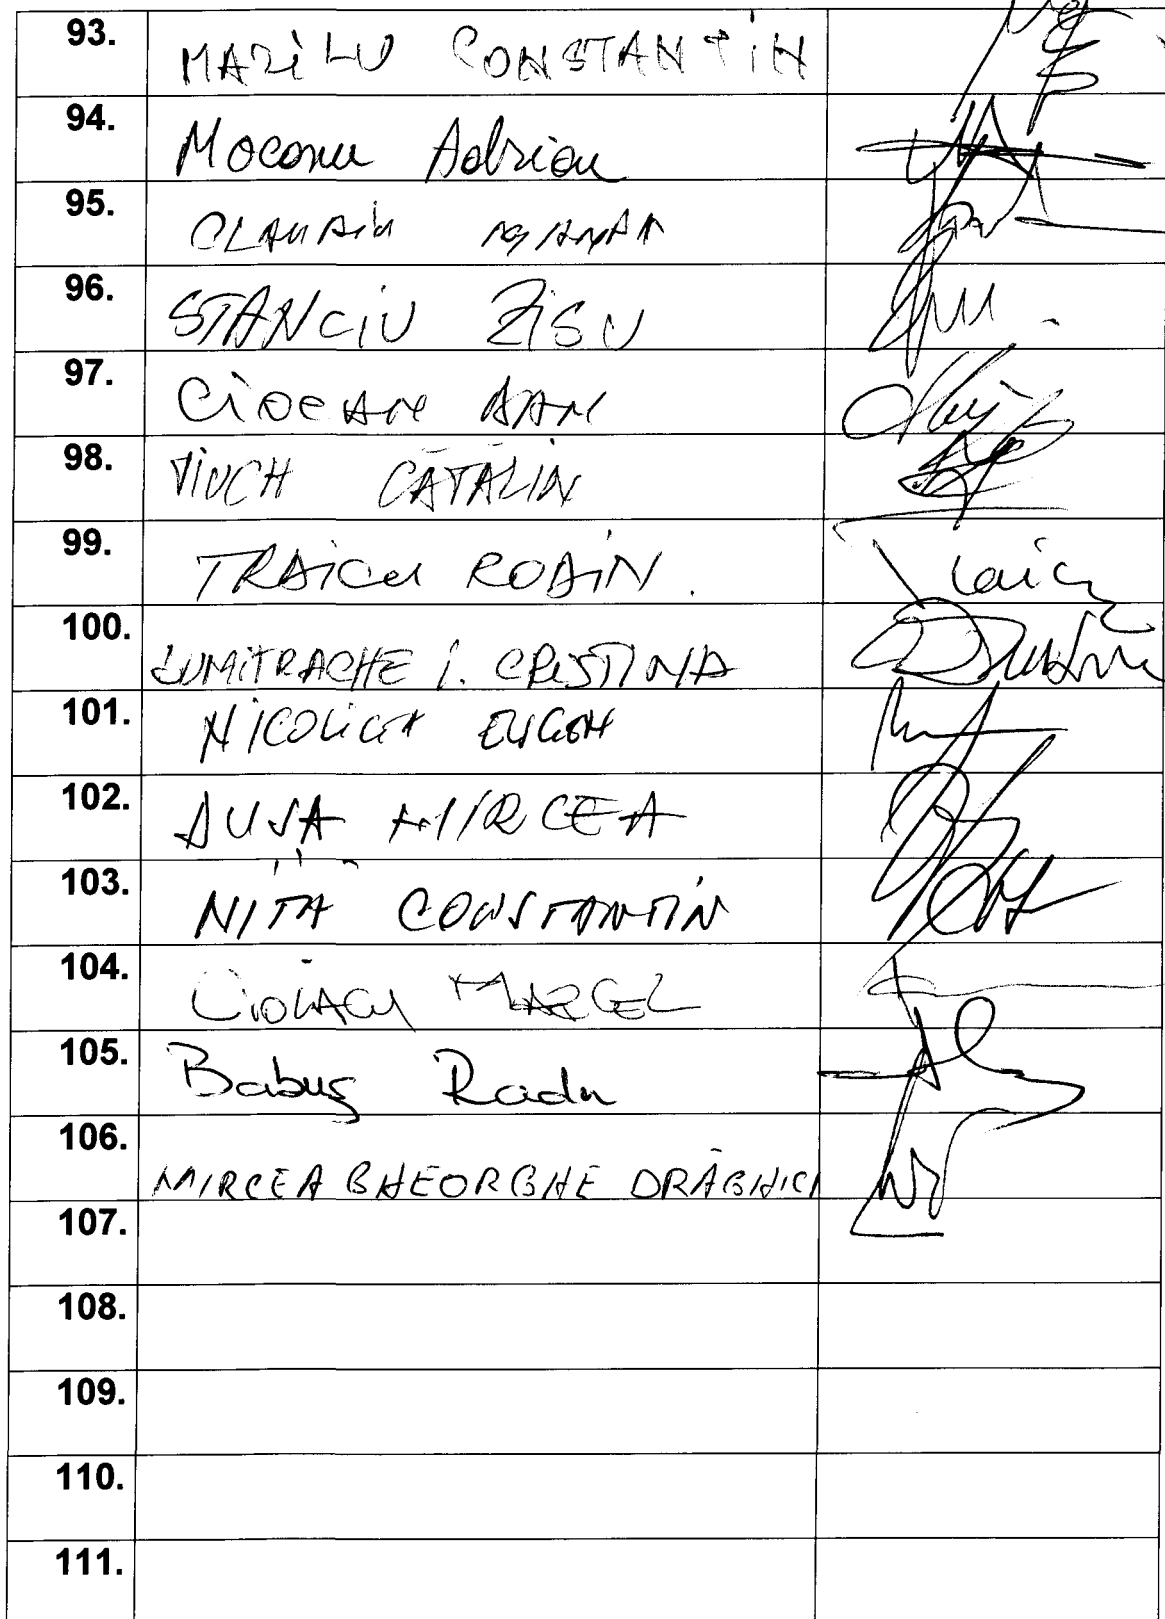 93. MAZiLU CONSTANTIN
94. Mocanu Adrian
95. CLAUDIU MANDA
96. STANCIU ZiSU
97. CiOCAN DAN
98. CĂTĂLIN
99. TRAiCU RODiN.
100. DUMITRACHE I. CRISTINA
101. NICOLICEA EUGEN
102. DUȘA MIRCEA
103. NIȚĂ CONSTANTIN
104. CiOLACU MARCEL
105. Babuș Radu
106. MIRCEA GHEORGHE DRĂGHICI
107.
108.
109.
110.
111.